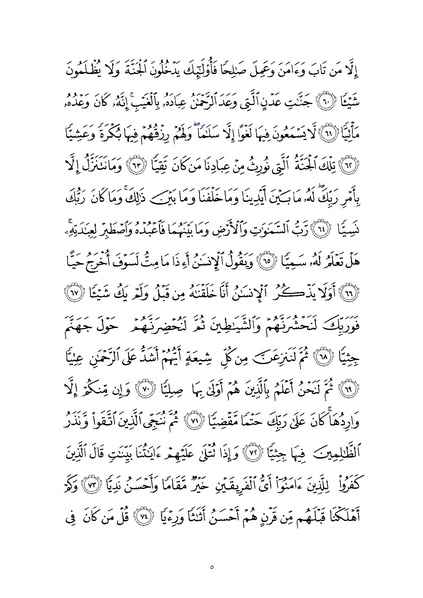 إِلَّا مَن تَابَ وَءَامَنَ وَعَمِلَ صَٰلِحًا فَأُو۟لَٰٓئِكَ يَدْخُلُونَ ٱلْجَنَّةَ وَلَا يُظْلَمُونَ
شَيْـًٔا ﴿٦٠﴾ جَنَّٰتِ عَدْنٍ ٱلَّتِى وَعَدَ ٱلرَّحْمَٰنُ عِبَادَهُۥ بِٱلْغَيْبِ ۚ إِنَّهُۥ كَانَ وَعْدُهُۥ
مَأْتِيًّا ﴿٦١﴾ لَّا يَسْمَعُونَ فِيهَا لَغْوًا إِلَّا سَلَٰمًا ۖ وَلَهُمْ رِزْقُهُمْ فِيهَا بُكْرَةً وَعَشِيًّا
﴿٦٢﴾ تِلْكَ ٱلْجَنَّةُ ٱلَّتِى نُورِثُ مِنْ عِبَادِنَا مَن كَانَ تَقِيًّا ﴿٦٣﴾ وَمَا نَتَنَزَّلُ إِلَّا
بِأَمْرِ رَبِّكَ ۖ لَهُۥ مَا بَيْنَ أَيْدِينَا وَمَا خَلْفَنَا وَمَا بَيْنَ ذَٰلِكَ ۚ وَمَا كَانَ رَبُّكَ
نَسِيًّا ﴿٦٤﴾ رَّبُّ ٱلسَّمَٰوَٰتِ وَٱلْأَرْضِ وَمَا بَيْنَهُمَا فَٱعْبُدْهُ وَٱصْطَبِرْ لِعِبَٰدَتِهِۦ ۚ
هَلْ تَعْلَمُ لَهُۥ سَمِيًّا ﴿٦٥﴾ وَيَقُولُ ٱلْإِنسَٰنُ أَءِذَا مَا مِتُّ لَسَوْفَ أُخْرَجُ حَيًّا
﴿٦٦﴾ أَوَلَا يَذْكُرُ ٱلْإِنسَٰنُ أَنَّا خَلَقْنَٰهُ مِن قَبْلُ وَلَمْ يَكُ شَيْـًٔا ﴿٦٧﴾
فَوَرَبِّكَ لَنَحْشُرَنَّهُمْ وَٱلشَّيَٰطِينَ ثُمَّ لَنُحْضِرَنَّهُمْ حَوْلَ جَهَنَّمَ
جِثِيًّا ﴿٦٨﴾ ثُمَّ لَنَنزِعَنَّ مِن كُلِّ شِيعَةٍ أَيُّهُمْ أَشَدُّ عَلَى ٱلرَّحْمَٰنِ عِتِيًّا
﴿٦٩﴾ ثُمَّ لَنَحْنُ أَعْلَمُ بِٱلَّذِينَ هُمْ أَوْلَىٰ بِهَا صِلِيًّا ﴿٧٠﴾ وَإِن مِّنكُمْ إِلَّا
وَارِدُهَا ۚ كَانَ عَلَىٰ رَبِّكَ حَتْمًا مَّقْضِيًّا ﴿٧١﴾ ثُمَّ نُنَجِّى ٱلَّذِينَ ٱتَّقَوا۟ وَّنَذَرُ
ٱلظَّٰلِمِينَ فِيهَا جِثِيًّا ﴿٧٢﴾ وَإِذَا تُتْلَىٰ عَلَيْهِمْ ءَايَٰتُنَا بَيِّنَٰتٍ قَالَ ٱلَّذِينَ
كَفَرُوا۟ لِلَّذِينَ ءَامَنُوٓا۟ أَىُّ ٱلْفَرِيقَيْنِ خَيْرٌ مَّقَامًا وَأَحْسَنُ نَدِيًّا ﴿٧٣﴾ وَكَمْ
أَهْلَكْنَا قَبْلَهُم مِّن قَرْنٍ هُمْ أَحْسَنُ أَثَٰثًا وَرِءْيًا ﴿٧٤﴾ قُلْ مَن كَانَ فِى
٥